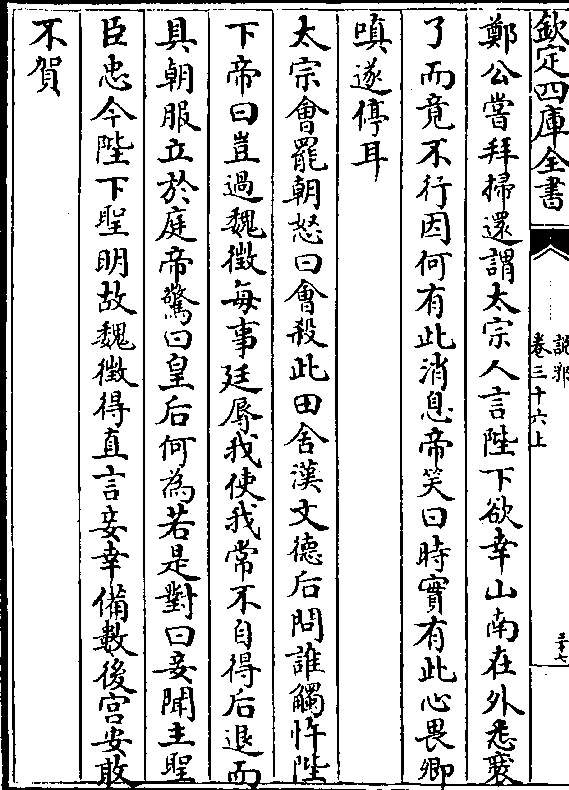 欽定四庫全書
說郛
卷三十六上
三十七
鄭公嘗拜掃還謂太宗人言陛下欲幸山南在外悉裝
了而竟不行因何有此消息帝笑曰時實有此心畏卿
嗔遂停耳
太宗會罷朝怒曰會殺此田舍漢文德后問誰觸忤陛
下帝曰豈過魏徵每事廷辱我使我常不自得后退而
具朝服立於庭帝驚曰皇后何為若是對曰妾聞主聖
臣忠今陛下聖明故魏徵得直言妾幸備數後宮安敢
不賀